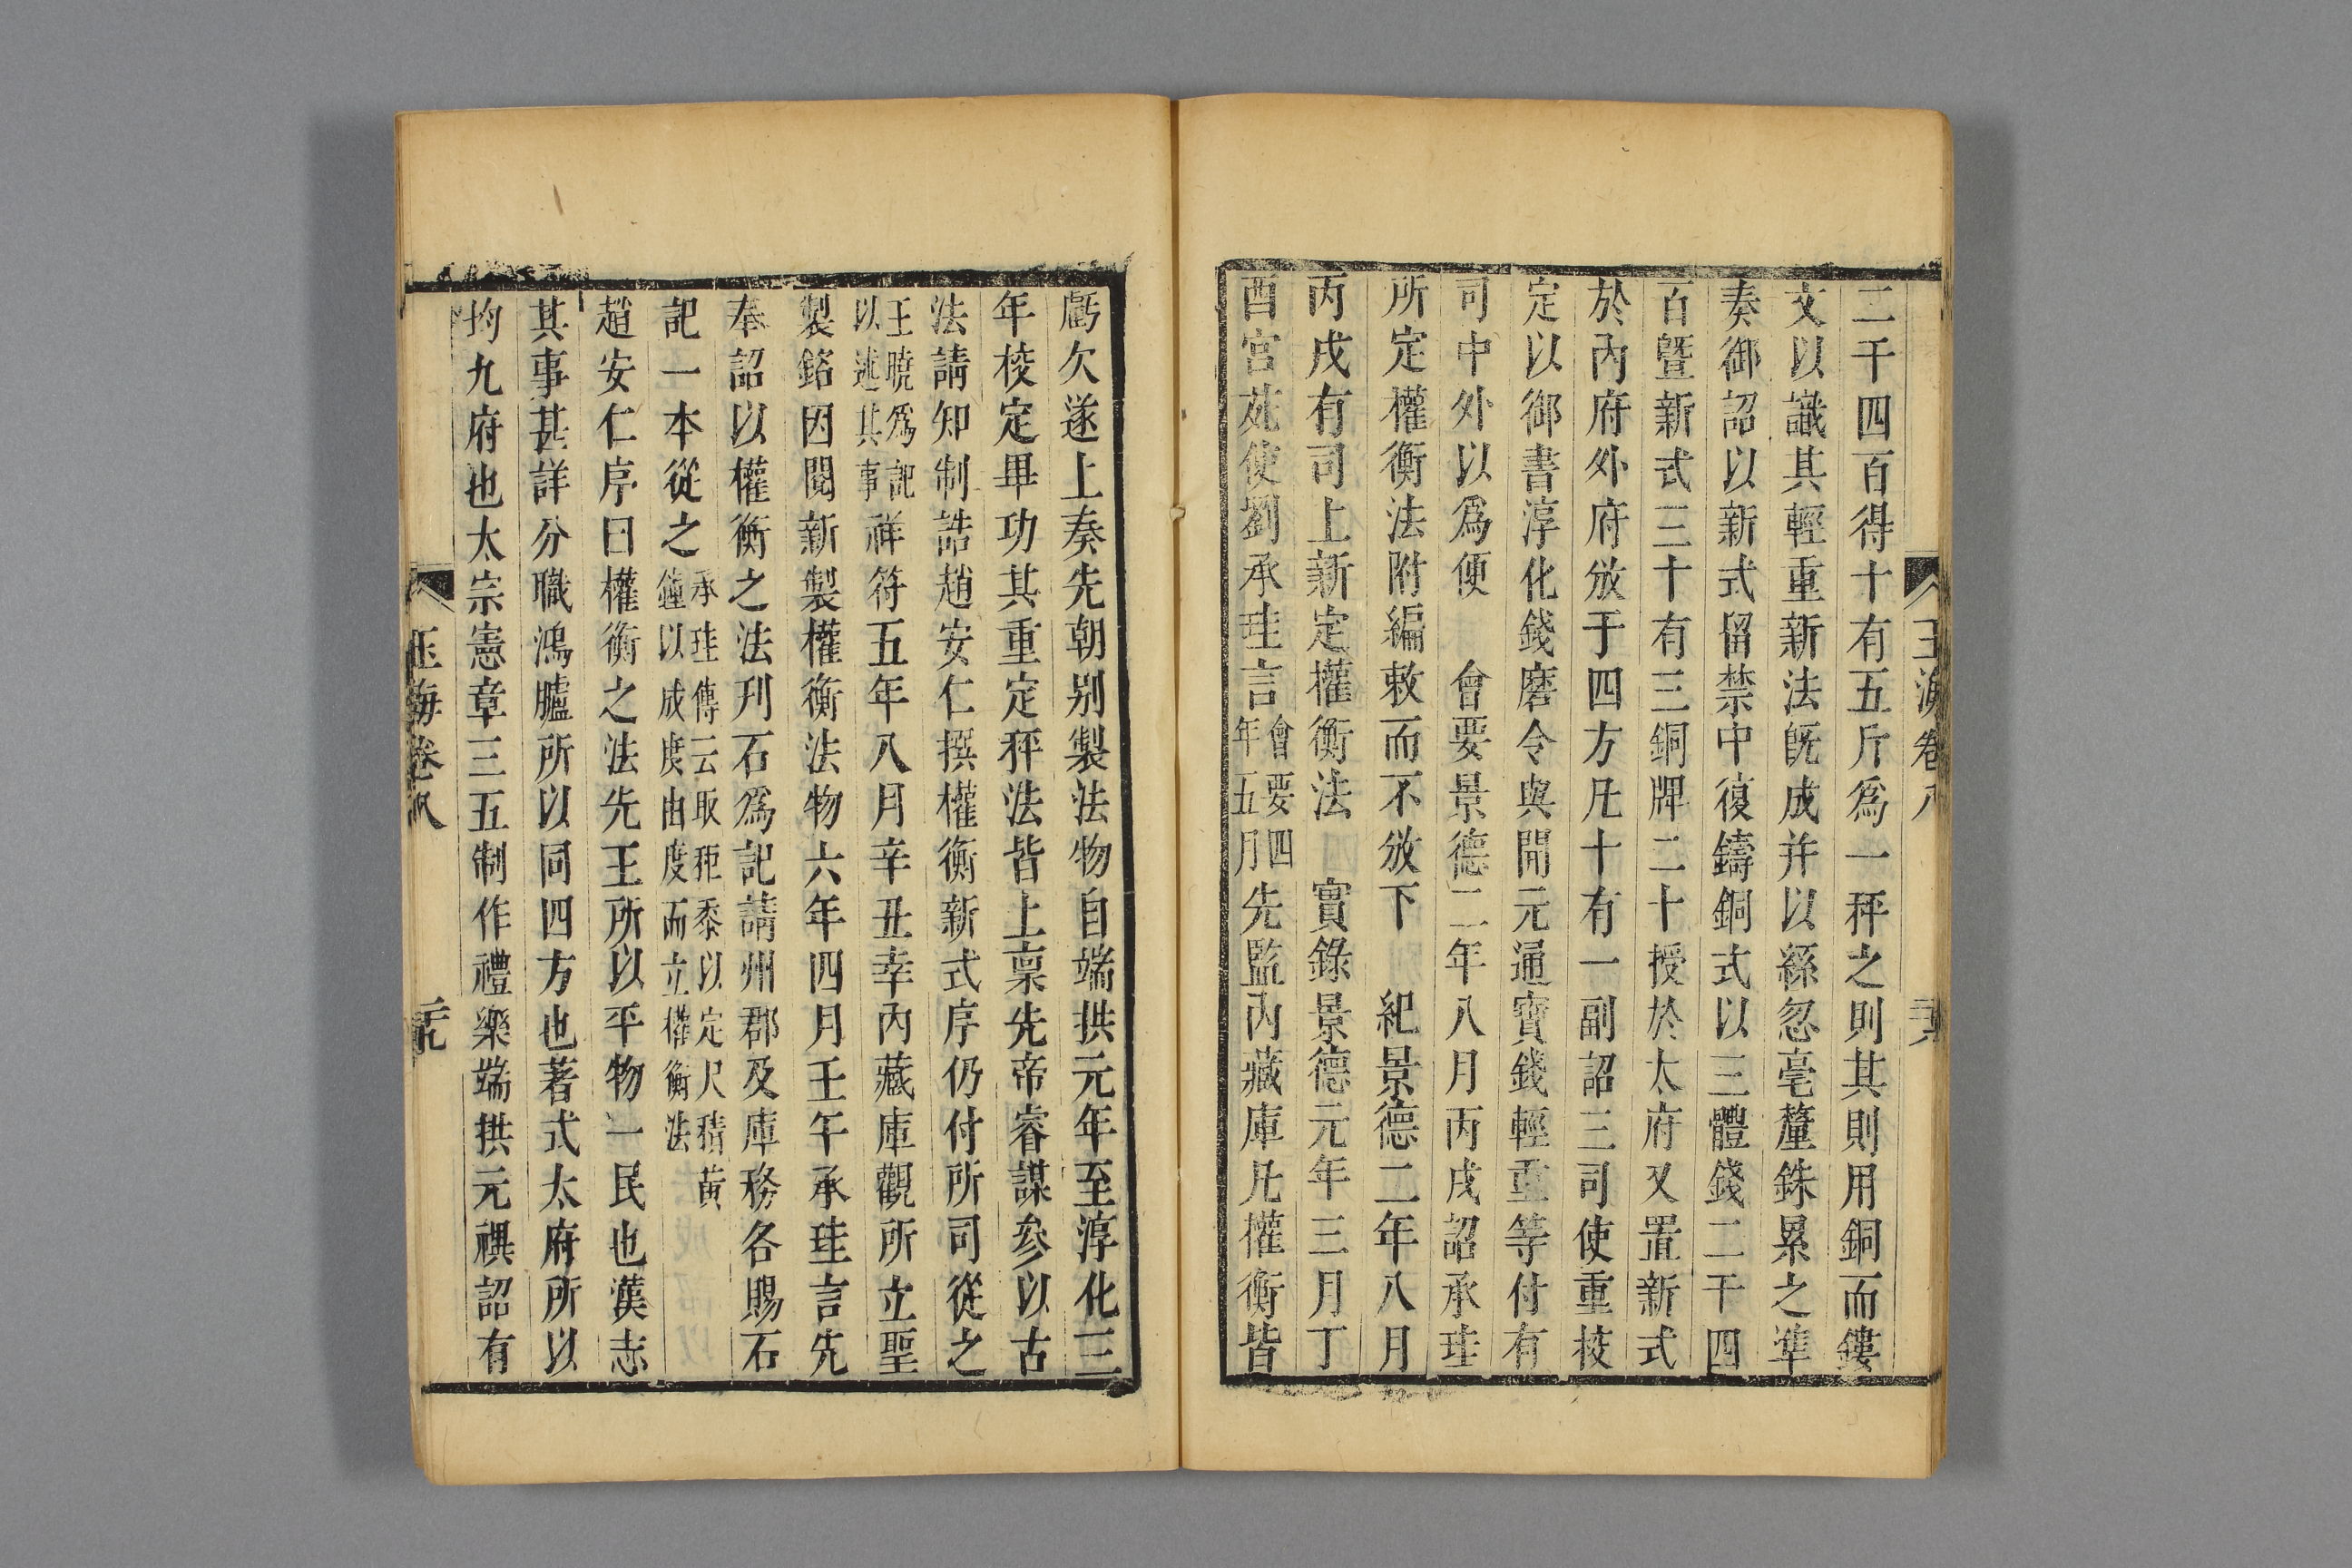 二千四百得十有五斤爲一秤之則其則用銅而鏤
文以識其輕重新法旣成并以絲忽毫釐銖累之準
奏御詔以新式留禁中復鑄銅式以三體錢二千四
百暨新式三十有三銅牌二十授於太府又置新式
於內府外府放于四方凡十有一副詔三司使重校
定以御書淳化錢磨令與開元通寶錢輕重等付有
司中外以爲便　會要景德二年八月丙戌詔承珪
所定權衡法附編敕而不放下　紀景德二年八月
丙戌有司上新定權衡法　實錄景德元年三月丁
酉宮苑使劉承珪言會要四年五月先監內藏庫凡權衡皆
玉海卷八
虧欠遂上奏先朝别製法物自端拱元年至淳化三
年校定畢功其重定秤法皆上稟先帝睿謀參以古
法請知制誥趙安仁撰權衡新式序仍付所司從之
王曉爲記以述其事祥符五年八月辛丑幸內藏庫觀所立聖
製銘因閱新製權衡法物六年四月壬午承珪言先
奉詔以權衡之法刋石爲記請州郡及庫務各賜石
記一本從之承珪傳云取秬黍以定尺積黃鐘以成度由度而立權衡法
趙安仁序曰權衡之法先王所以平物一民也漢志
其事甚詳分職鴻臚所以同四方也著式太府所以
均九府也太宗憲章三五制作禮樂端拱元禩詔有
玉海卷八